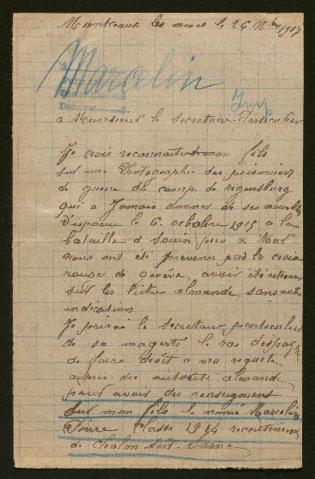 Montceaux les mines le 26 Nbre 1917
Marcelin
a Monsieur le secretaire Particulier
Je crois reconnaitre mon fils
sur une Photographie des prisoniers
de guerre du camp de regensburg
qui a Jamais donner de ses nouvelles
Disparue le 6 octobre 1915 a la
bataille d souin
nous ont été prevenu par la croix
rouge de genève, avoir été
sur les listes almande sans autre
indication
Je prie le secretaire particulier
de sa magesté le roi despagne
de faire droit a ma requête
auprès des autorité almand
pour avoir des renseignement
sur mon fils le nommé Marcelin
Pierre Classe 1914 recrutement
de chalon sur saone